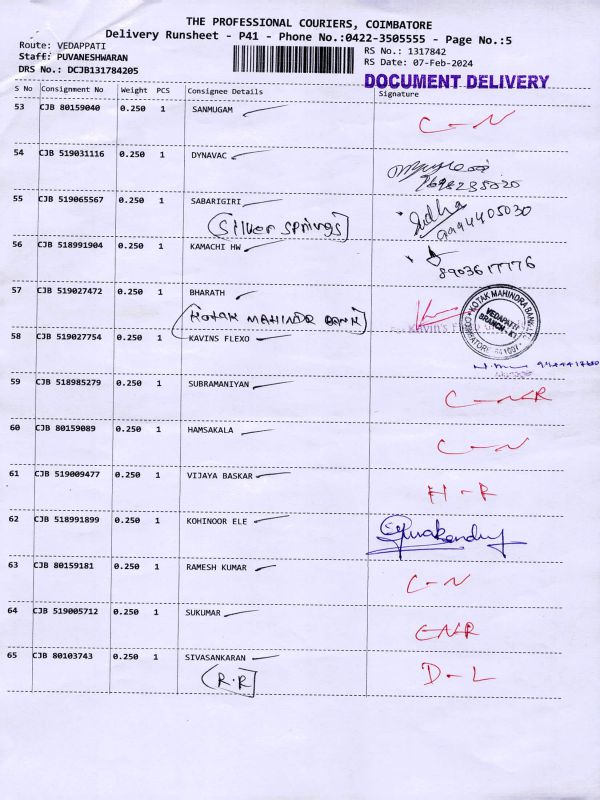 THE PROFESSIONAL COURIERS, COIMBATORE
Delivery Runsheet - P41 - Phone No.:0422-3505555 - Page No.:5
Route: VEDAPPATI
Staff: PUVANESHWARAN
DRS No.: DCJB131784205
RS No.: 1317842
RS Date: 07-Feb-2024
DOCUMENT DELIVERY
S No Consignment No Weight PCS Consignee Details Signature
53 CJB 80159040 0.250 1 SANMUGAM C-N
54 CJB 519031116 0.250 1 DYNAVAC
55 CJB 519065567 0.250 1 SABARIGIRI Sudha
(Silver Springs] 9994405030
56 CJB 518991904 0.250 1 KAMACHI HW
8903617776
57 CJB 519027472 0.250 1 BHARATH
(KOTAK MAHINDR BANK] Kavin's Flexo
KOTAK MAHINDRA BANK
VEDAPATI
BRANCH
58 CJB 519027754 0.250 1 KAVINS FLEXO
59 CJB 518985279 0.250 1 SUBRAMANIYAN C-NR
60 CJB 80159089 0.250 1 HAMSAKALA C-N
61 CJB 519009477 0.250 1 VIJAYA BASKAR H-R
62 CJB 518991899 0.250 1 KOHINOOR ELE
63 CJB 80159181 0.250 1 RAMESH KUMAR C-N
64 CJB 519005712 0.250 1 SUKUMAR CNR
65 CJB 80103743 0.250 1 SIVASANKARAN D-L
(R.R]